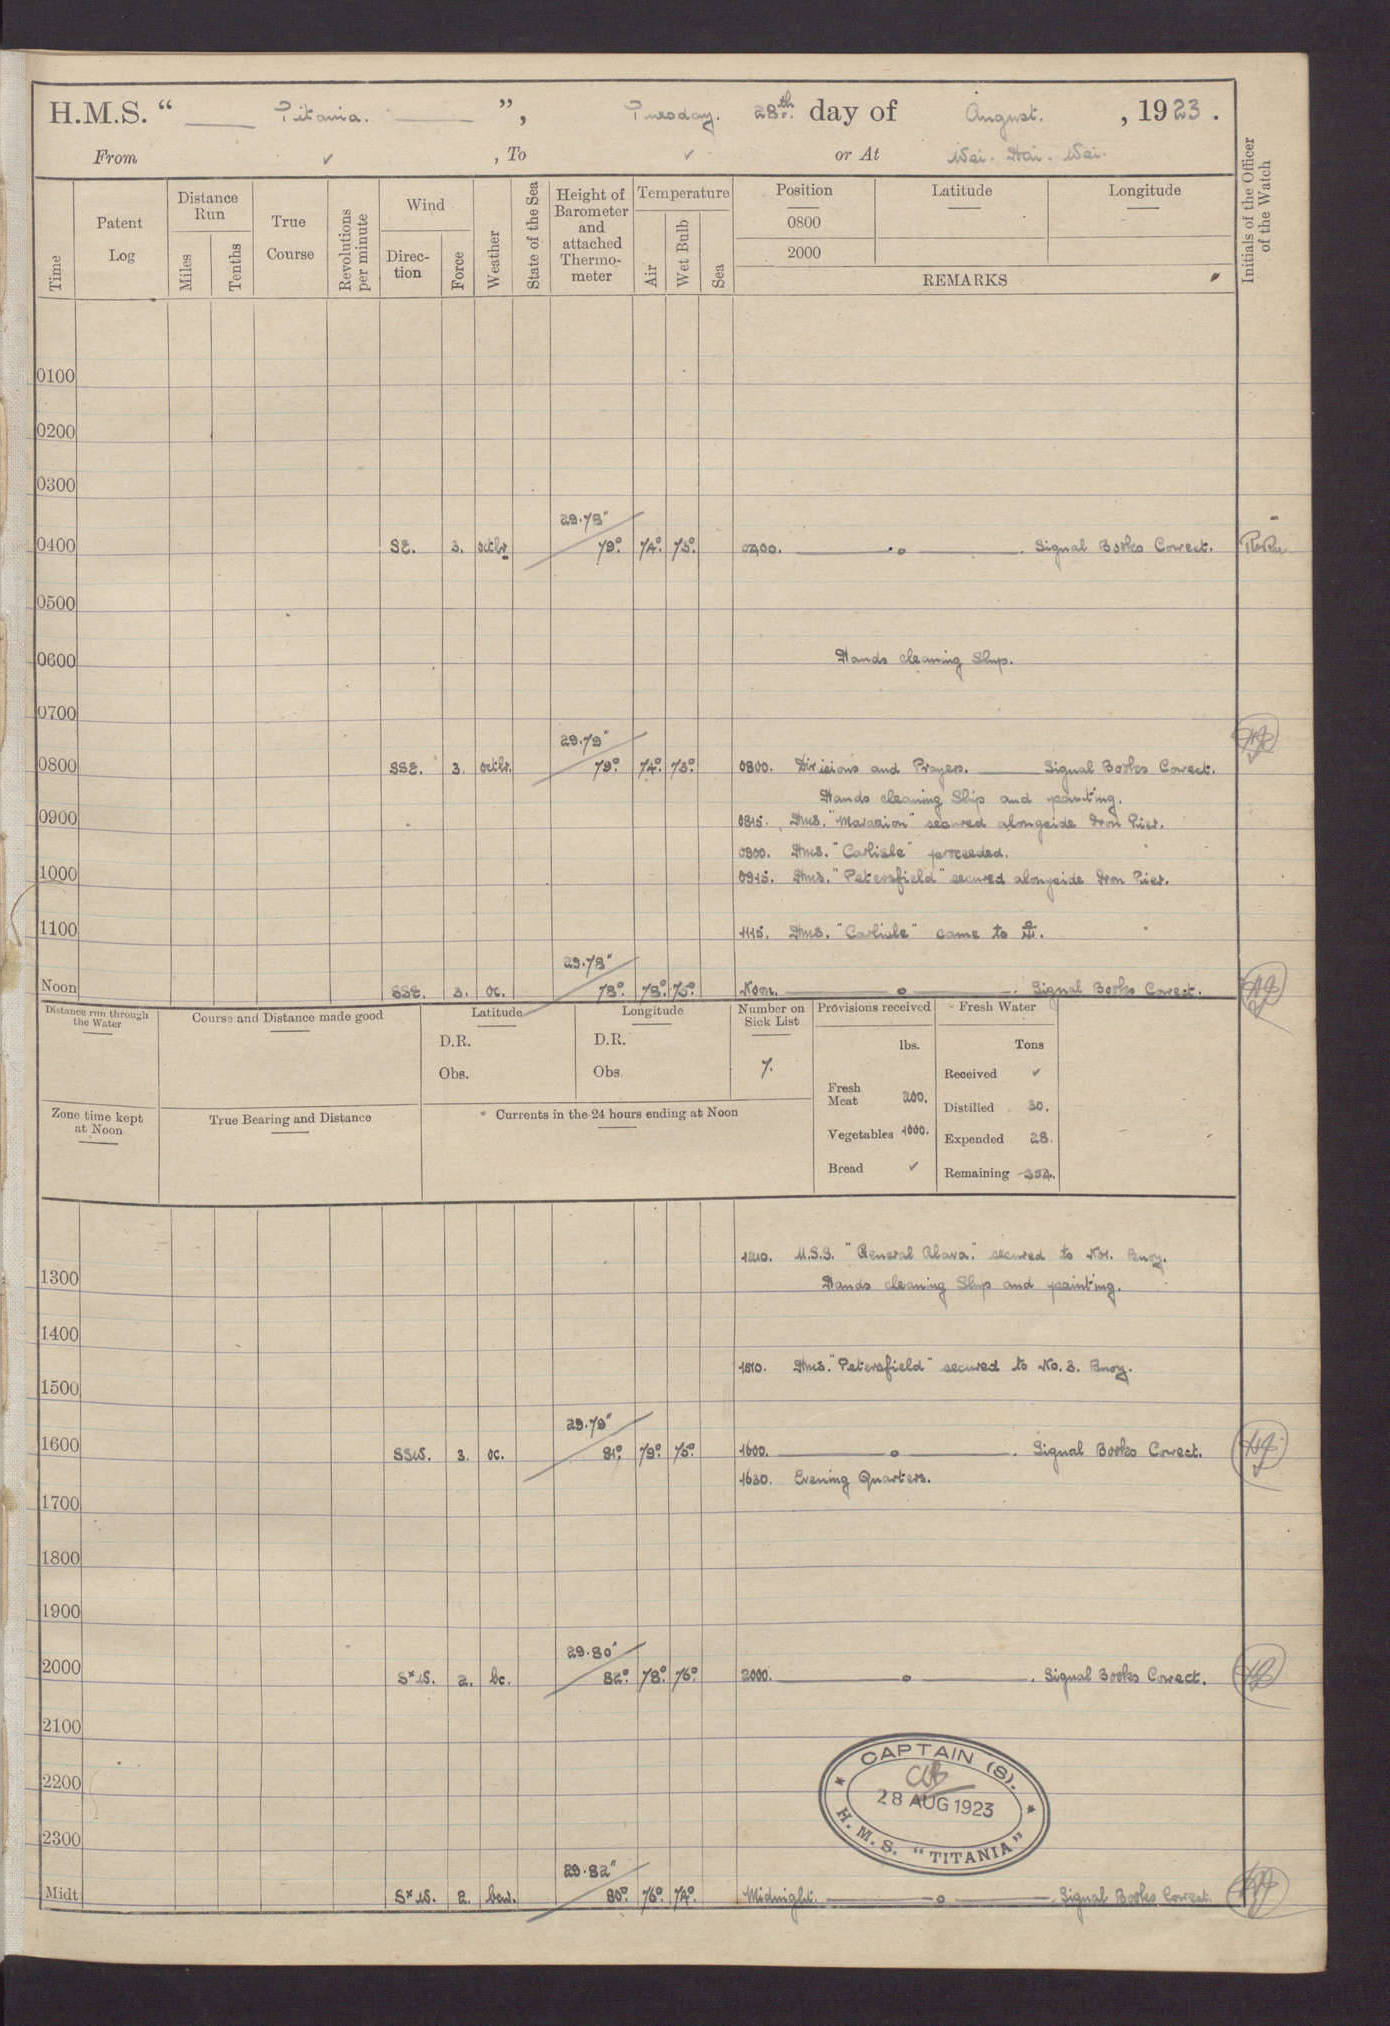 H.M.S. “ Titania. ”, Tuesday. 28th. day of August. , 1923.
From ✓ , To ✓ or At Wei. Hai. Wei.
Time
Patent Log
Distance Run
Miles
Tenths
True Course
Revolutions per minute
Wind
Direction
Force
Weather
State of the Sea
Height of Barometer and attached Thermometer
Temperature
Air
Wet Bulb
Sea
Position
0800
2000
Latitude
Longitude
REMARKS
Initials of the Officer of the Watch
0100
0200
0300
29.78"
0400 SE. 3. 79°. 74°. 73°. 0400. Signal Books Correct.
0500
0600 Hands cleaning Ship.
0700
29.79"
0800 SSE. 3. 79°. 74°. 73°. 0800. Divisions and Prayers. Signal Books Correct.
Hands cleaning Ship and painting.
0900 0815. Hms. "Marazion" secured alongside Iron Pier.
Hms. "Carlisle" proceeded.
1000 0915. Hms. "Petersfield" secured alongside Iron Pier.
1100 1115. Hms. "Carlisle" came to ⚓.
29.78"
Noon SSE. 3. oc. 78°. 78°. 75°. Noon. Signal Books Correct.
Distance run through the Water
Course and Distance made good
Latitude
D.R.
Obs.
Longitude
D.R.
Obs.
Number on Sick List
7.
Provisions received
lbs.
Fresh Meat 200.
Vegetables 1000.
Bread ✓
Fresh Water
Tons
Received ✓
Distilled 30.
Expended 28.
Remaining
Zone time kept at Noon
True Bearing and Distance
Currents in the 24 hours ending at Noon
1210. U.S.S. "General Alava." secured to No1. Buoy.
1300 Hands cleaning Ship and painting.
1400
1510. Hms. "Petersfield" secured to No. 3. Buoy.
1500
29.79"
1600 SSW. 3. oc. 81°. 79°. 75°. 1600. Signal Books Correct.
1630. Evening Quarters.
1700
1800
1900
29.80"
2000 SxW. 2. bc. 82°. 78°. 76°. 2000. Signal Books Correct.
2100
2200
CAPTAIN (S).
28 AUG 1923
H.M.S. "TITANIA"
2300
29.82"
Midt SxW. 2. bcw. 80°. 76°. 74°. Midnight. Signal Books Correct.